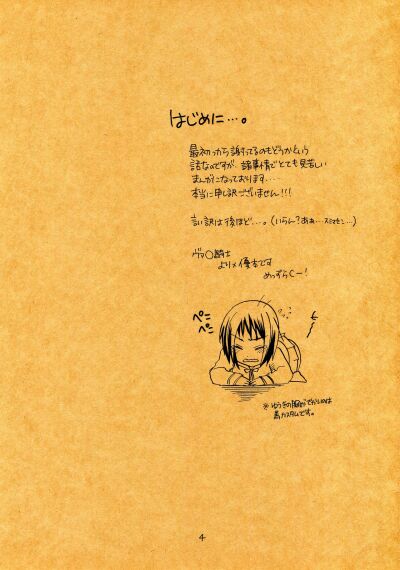 はじめに…。
最初っから謝ってるのもどうかという
話なのですが、諸事情でとても見苦しい
まんがになっております…
本当に申し訳ございません!!!
言い訳は後ほど…。(いらん?ああ…スミマセン…)
ヴァ○騎士
より×優本です
めっずらしー!
ぺこ
ぺこ
※ゆうきの胸がでかいのは
カスタムです。
4